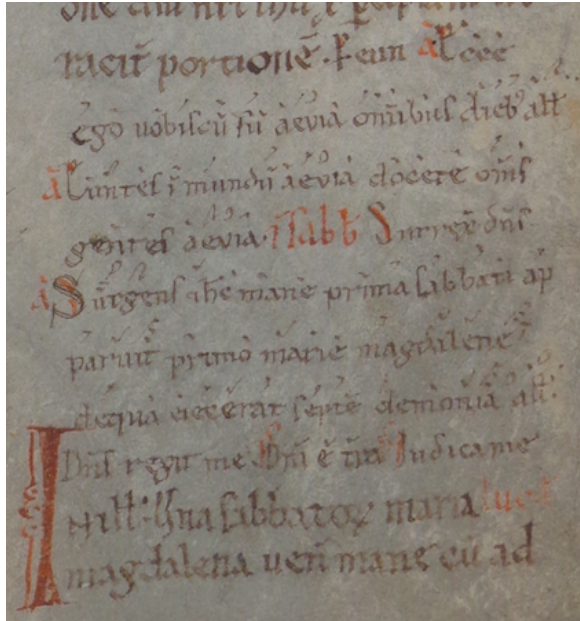 racit portionē. Feun ā Ecce
ego uobiscū sū aeuia om̄ibus dieb all
ā Euntes ī mundū aeuia docete om̄s
gentes aeuia. ī sabb Surrex dn̄s
ā Surgens ih̄e mane prima sabbati ap
paruit primo marie magdalene
dequa eiecerat septē demonia all
Dn̄s regit me Dn̄i ē tr̄a Iudica me
IN illꞏ Una sabbatoꝝ maria luc
magdalena uen̄ mane cū ad